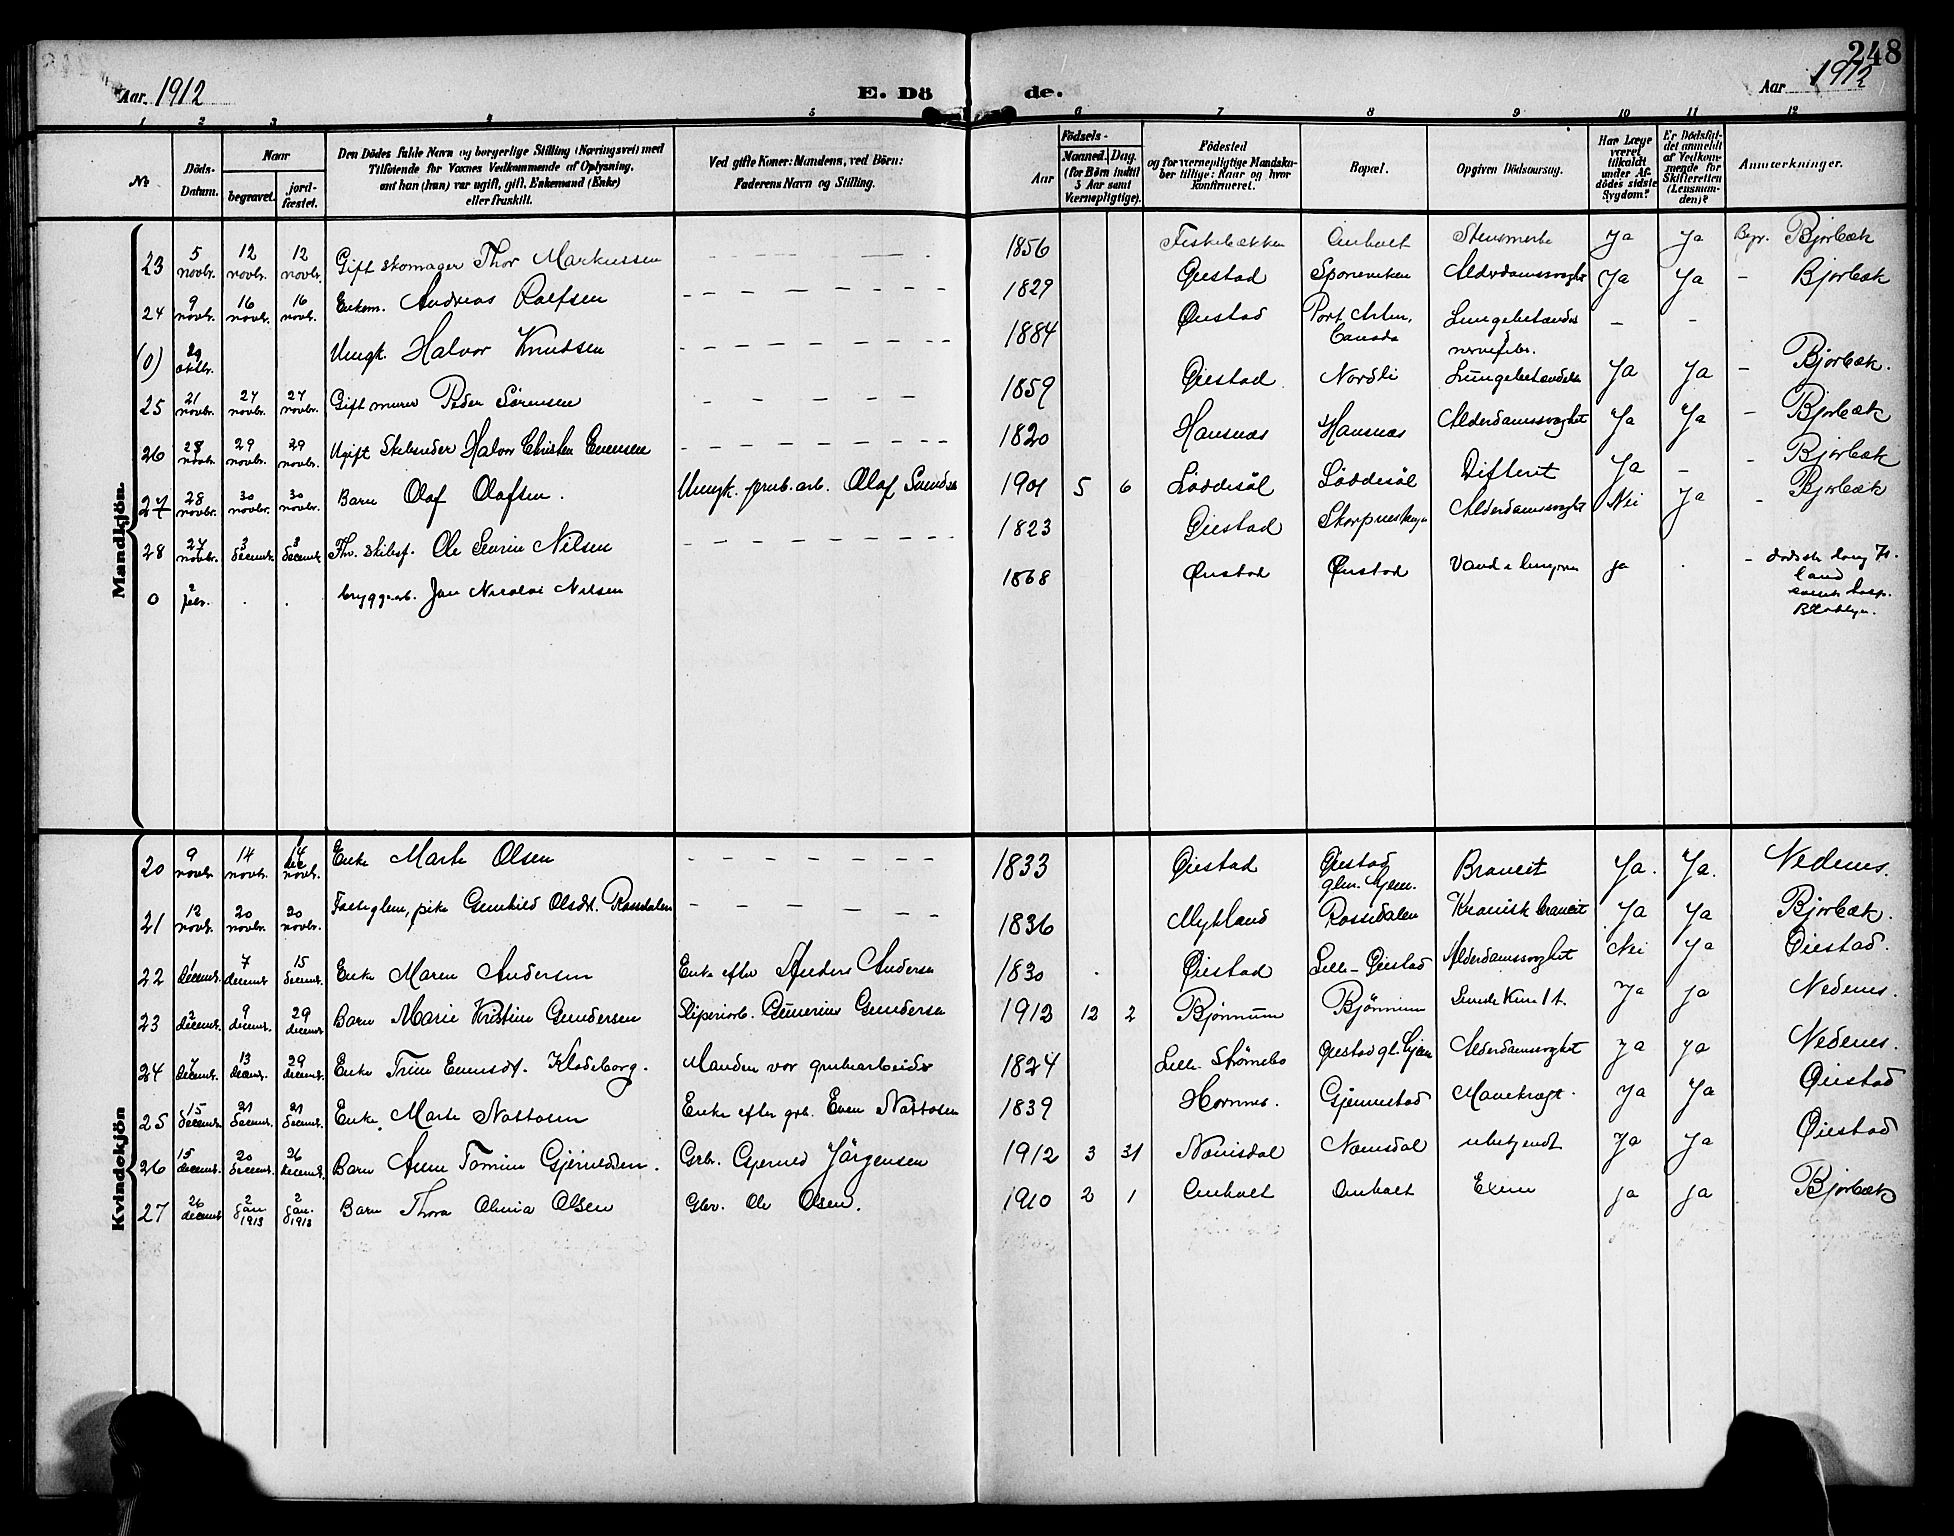 248
Aar 1912
E. Dö de.
Aar 1912
1 2 3 4 5 6 7 8 9 10 11 12
№
Döds-Datum.
Naar
begravet.
jord-fæstet.
Den Dödes fulde Navn og borgerlige Stilling (Næringsvei) med
Tilföiende for Voxnes Vedkommende af Oplysning,
om han (hun) var ugift, gift, Enkemand (Enke)
eller fraskilt.
Ved gifte Koner: Mandens, ved Börn:
Faderens Navn og Stilling.
Födsels-
Aar
Maaned. Dag.
(for Börn indtil
5 Aar samt
Værnepligtige).
Födested
og for værnepligtige Mandska-
ber tillige: Naar og hvor
konfirmeret.
Bopæl.
Opgiven Dödsaarsag.
Har Læge
været
tilkaldt
under Af-
dödes sidste
Sygdom?
Er Dödsfal-
det anmeldt
af Vedkom-
mende for
Skifteretten
(Lensman-
den)?
Anmærkninger.
Mandkjön.
23 5 novbr. 12 novbr. 12 novbr. Gift skomager Thor Markussen 1856 Fiskebækken Omholt Ja Ja Begr. Bjorbæk
24 9 novbr. 16 novbr. 16 novbr. Enkem. Andreas Roefsen 1829 Øiestad Sporeviken Alderdomssvaghet Ja Ja - Bjorbæk
(0) 29 oktbr. Ungk. Halvor Knudsen 1884 Øiestad Port Canada Lungebetændelse - -
25 21 novbr. 27 novbr. 27 novbr. Gift murer Peder Sørensen 1859 Øiestad Nordli Lungebetændelse Ja Ja - Bjorbæk.
26 28 novbr. 29 novbr. 29 novbr. Ugift Halvor Christen Evensen 1820 Hansnæs Hansnæs Alderdomssvaghet Ja Ja - Bjorbæk
27 28 novbr. 30 novbr. 30 novbr. Barn Olaf Olafsen. Ungk. grub.arb. Olaf 1901 5 6 Løddesøl Løddesøl Difterit Ja - - Bjorbæk
28 27 novbr. 3 decemb. 3 decemb. Ole Severin Nilsen 1823 Øiestad Alderdomssvaghet Nei Ja - Bjorbæk
0 2 febr. . . bryggearb. Jan Nicolai Nilsen 1868 Øiestad Øiestad Vand i lungerne ja . - døde Long Is-
land
Brooklyn.
Kvindekjön
20 9 novbr. 14 novbr. 14 novbr. Enke Marte Olsen 1833 Øiestad Øiestad glm. hjem. Broncit Ja. Ja. Nedenes.
21 12 novbr. 20 novbr. 20 novbr. pike Gunhild Olsdt. Rossedalen 1836 Mykland Rossedalen Kronisk broncit Ja Ja Bjorbæk.
22 1 decemb. 7 decemb. 15 decemb. Enke Maren Andersen Enke efter Anders Andersen 1830 . Øiestad Lille-Øiestad Alderdomssvaghet Nei Ja Øiestad.
23 2 decemb. 9 decemb. 29 decemb. Barn Marie Kristine Gundersen Sliperiarb. Gunerius Gundersen 1912 12 2 Bjønnum Bjønnum Ja Ja Nedenes.
24 7 decemb. 13 decemb. 29 decemb. Enke Trine Evensdt. Klodeborg. Manden var grubearbeider 1824 Lille-Strømsbo Øiestad gl. hjem Alderdomssvaghet Ja Ja Nedenes.
25 15 decemb. 21 decemb. 21 decemb. Enke Marte Nottosen Enke efter grb. Even Nottosen 1839 Hornnes. Gjennestad Mavekræft. Ja Ja Øiestad
26 15 decemb. 20 decemb. 26 decemb. Barn Anne Tomine Gjeruldsen. Grbr. Gjeruld Jörgensen 1912 3 31 Næmsdal Næmsdal ubekjendt Ja Ja Øiestad
27 26 decemb. 2 Jan 1913 2 Jan. 1913 Barn Thora Olivia Olsen Gbr. Ole Olsen. 1910 2 1 Omholt Omholt ja ja Bjorbæk